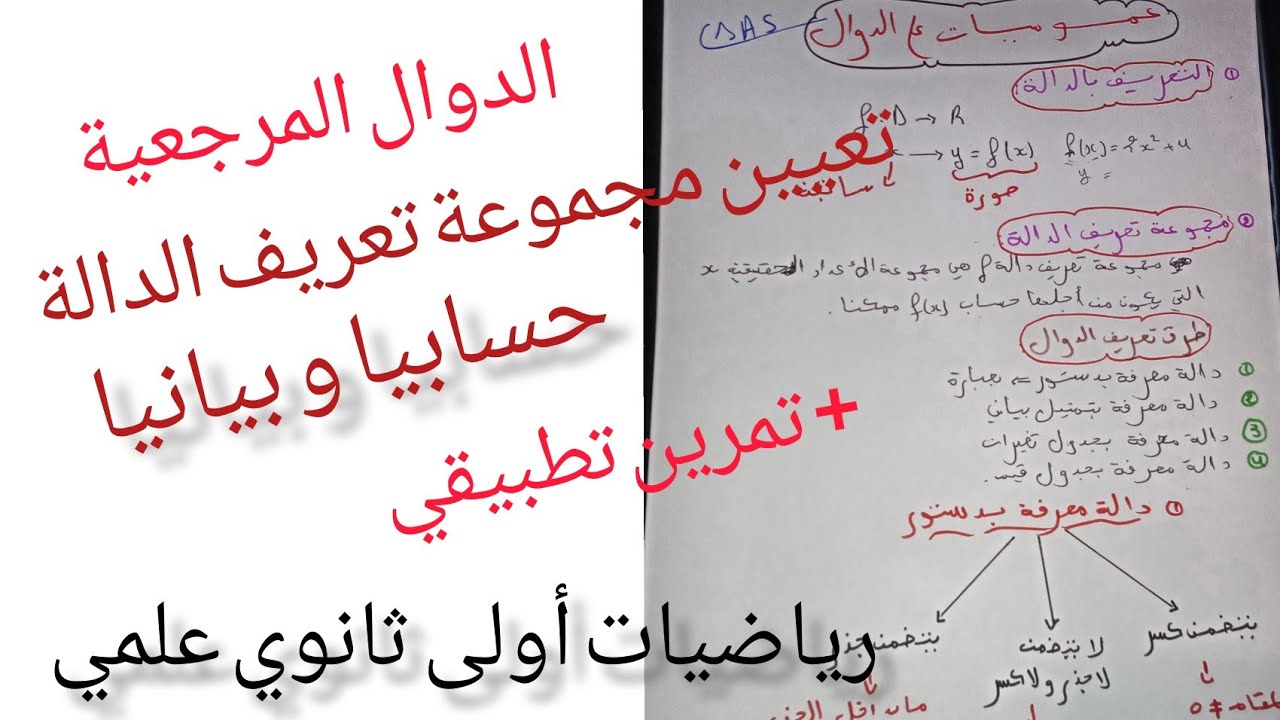 الدوال المرجعية
تعيين مجموعة تعريف الدالة
حسابيا و بيانيا
+ تمرين تطبيقي
رياضيات أولى ثانوي علمي
عموميات على الدوال
① التعريف بالدالة
D → R
→ y = f(x)
سابقة
صورة
y =
② مجموعة تعريف الدالة
مجموعة تعريف دالة f هي مجموعة الأعداد الحقيقية x
التي يكون من أجلها حساب f(x) ممكنا.
طرق تعريف الدوال
① دالة معرفة بدستور = عبارة
② دالة معرفة بتمثيل بياني
③ دالة معرفة بجدول تغيرات
④ دالة معرفة بجدول قيم.
① دالة معرفة بدستور
يتضمن كسر
لا يتضمن
لا جذر ولا كسر
يتضمن جذر
المقام ≠ 0